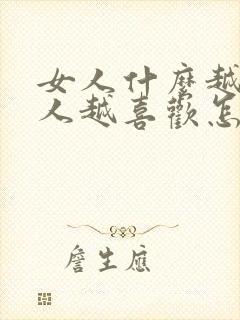 女人什麼越
人越喜歡怎
詹生應